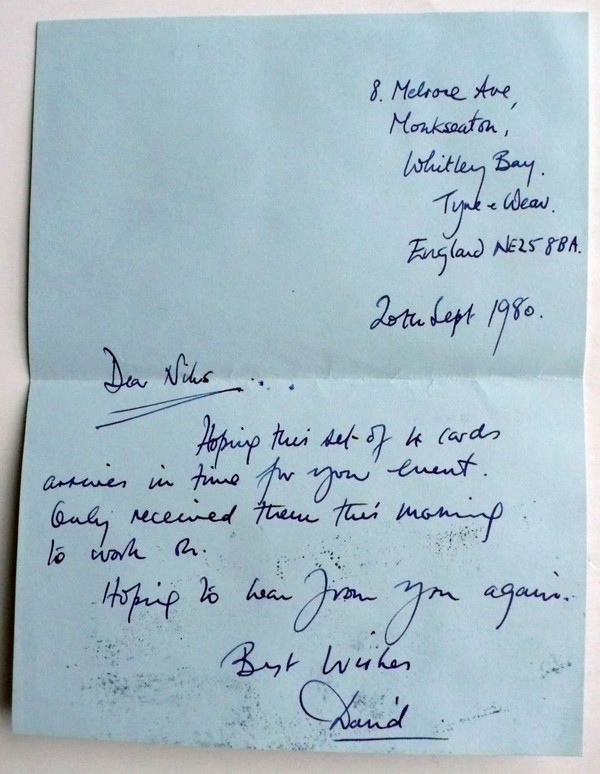 8. Melrose Ave,
Monkseaton,
Whitley Bay.
Tyne & Wear.
England NE25 8BA.
20th Sept 1980.
Dear Niko ...
Hoping this set of 4 cards
arrives in time for your event.
Only received them this morning
to work on.
Hoping to hear from you again.
Best Wishes
David